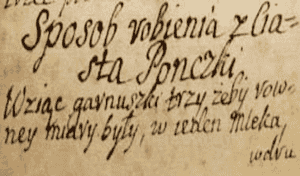 Sposob robienia z Cia-
sta Ponczki
Wziąc garnuszki trzy żeby row-
ney miary były, w ieden Mleka,
wdru